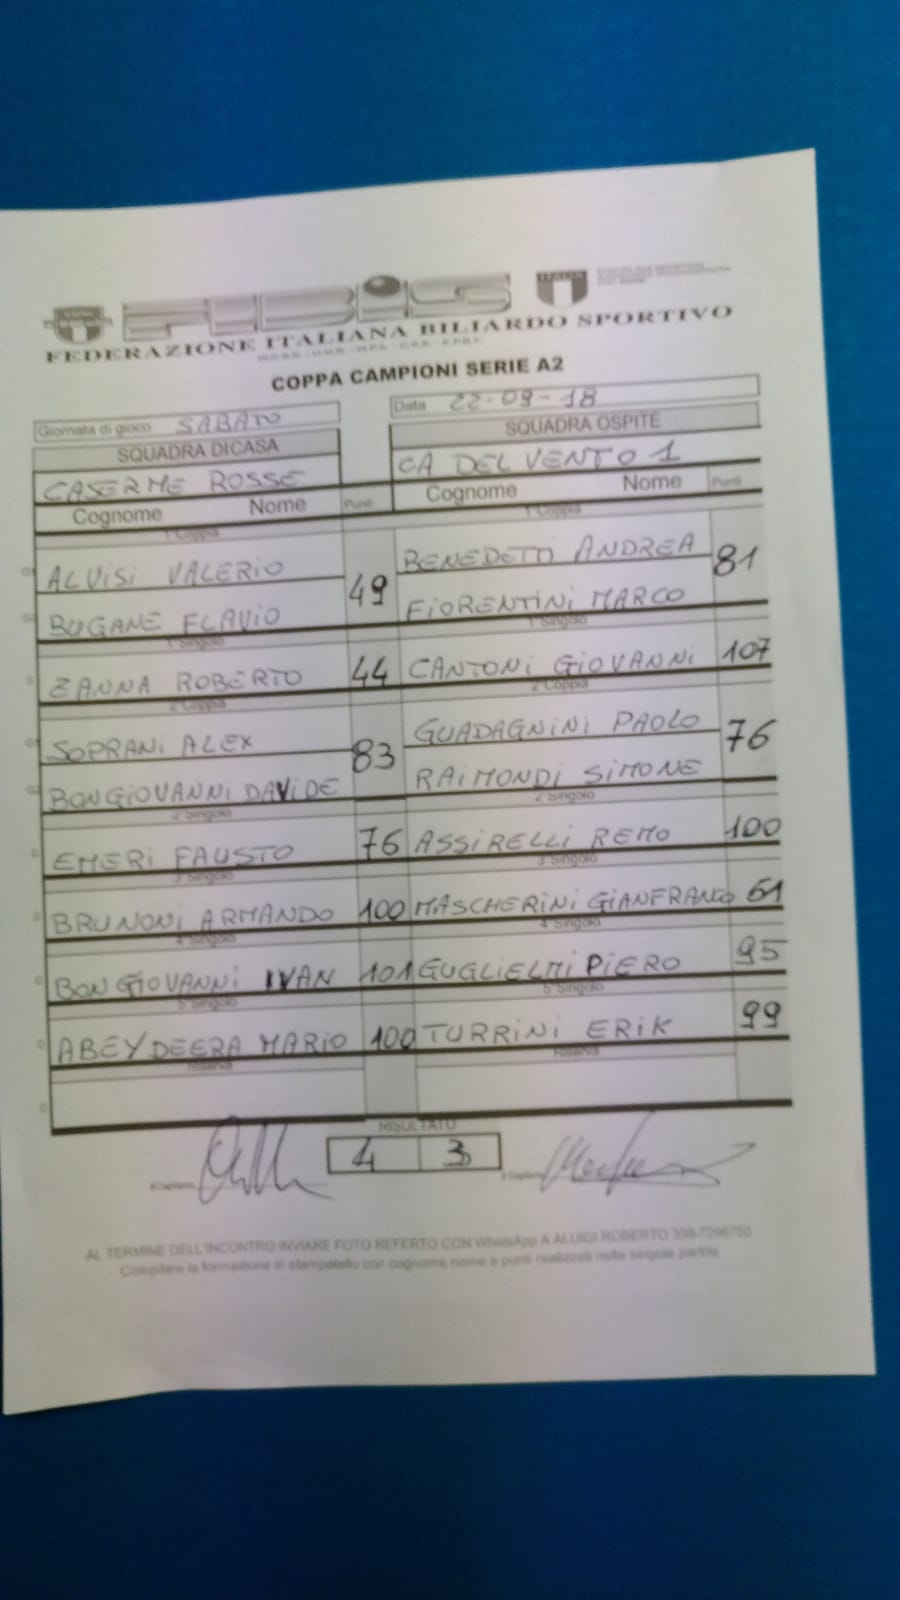 FIBiS
ITALIA
FEDERAZIONE ITALIANA BILIARDO SPORTIVO
COPPA CAMPIONI SERIE A2
Giornata di gioco SABATO Data 22-09-18
SQUADRA DI CASA SQUADRA OSPITE
CASERME ROSSE CA DEL VENTO 1
Cognome Nome Punti Cognome Nome Punti
1 Coppia 1 Coppia
ALVISI VALERIO 49 BENEDETTI ANDREA 81
BUGANE FLAVIO FIORENTINI MARCO
1 Singolo 1 Singolo
ZANNA ROBERTO 44 CANTONI GIOVANNI 107
2 Coppia 2 Coppia
SOPRANI ALEX 83 GUADAGNINI PAOLO 76
BONGIOVANNI DAVIDE RAIMONDI SIMONE
2 Singolo 2 Singolo
EMERI FAUSTO 76 ASSIRELLI REMO 100
3 Singolo 3 Singolo
BRUNONI ARMANDO 100 MASCHERINI GIANFRANCO 61
4 Singolo 4 Singolo
BONGIOVANNI IVAN 101 GUGLIELMI PIERO 95
5 Singolo 5 Singolo
ABEYDEERA MARIO 100 TURRINI ERIK 99
Riserva Riserva
RISULTATO
4 3
il Capitano il Capitano
AL TERMINE DELL'INCONTRO INVIARE FOTO REFERTO CON WhatsApp A ALUIGI ROBERTO 338-7296750
Compilare la formazione in stampatello con cognome nome e punti realizzati nelle singole partite